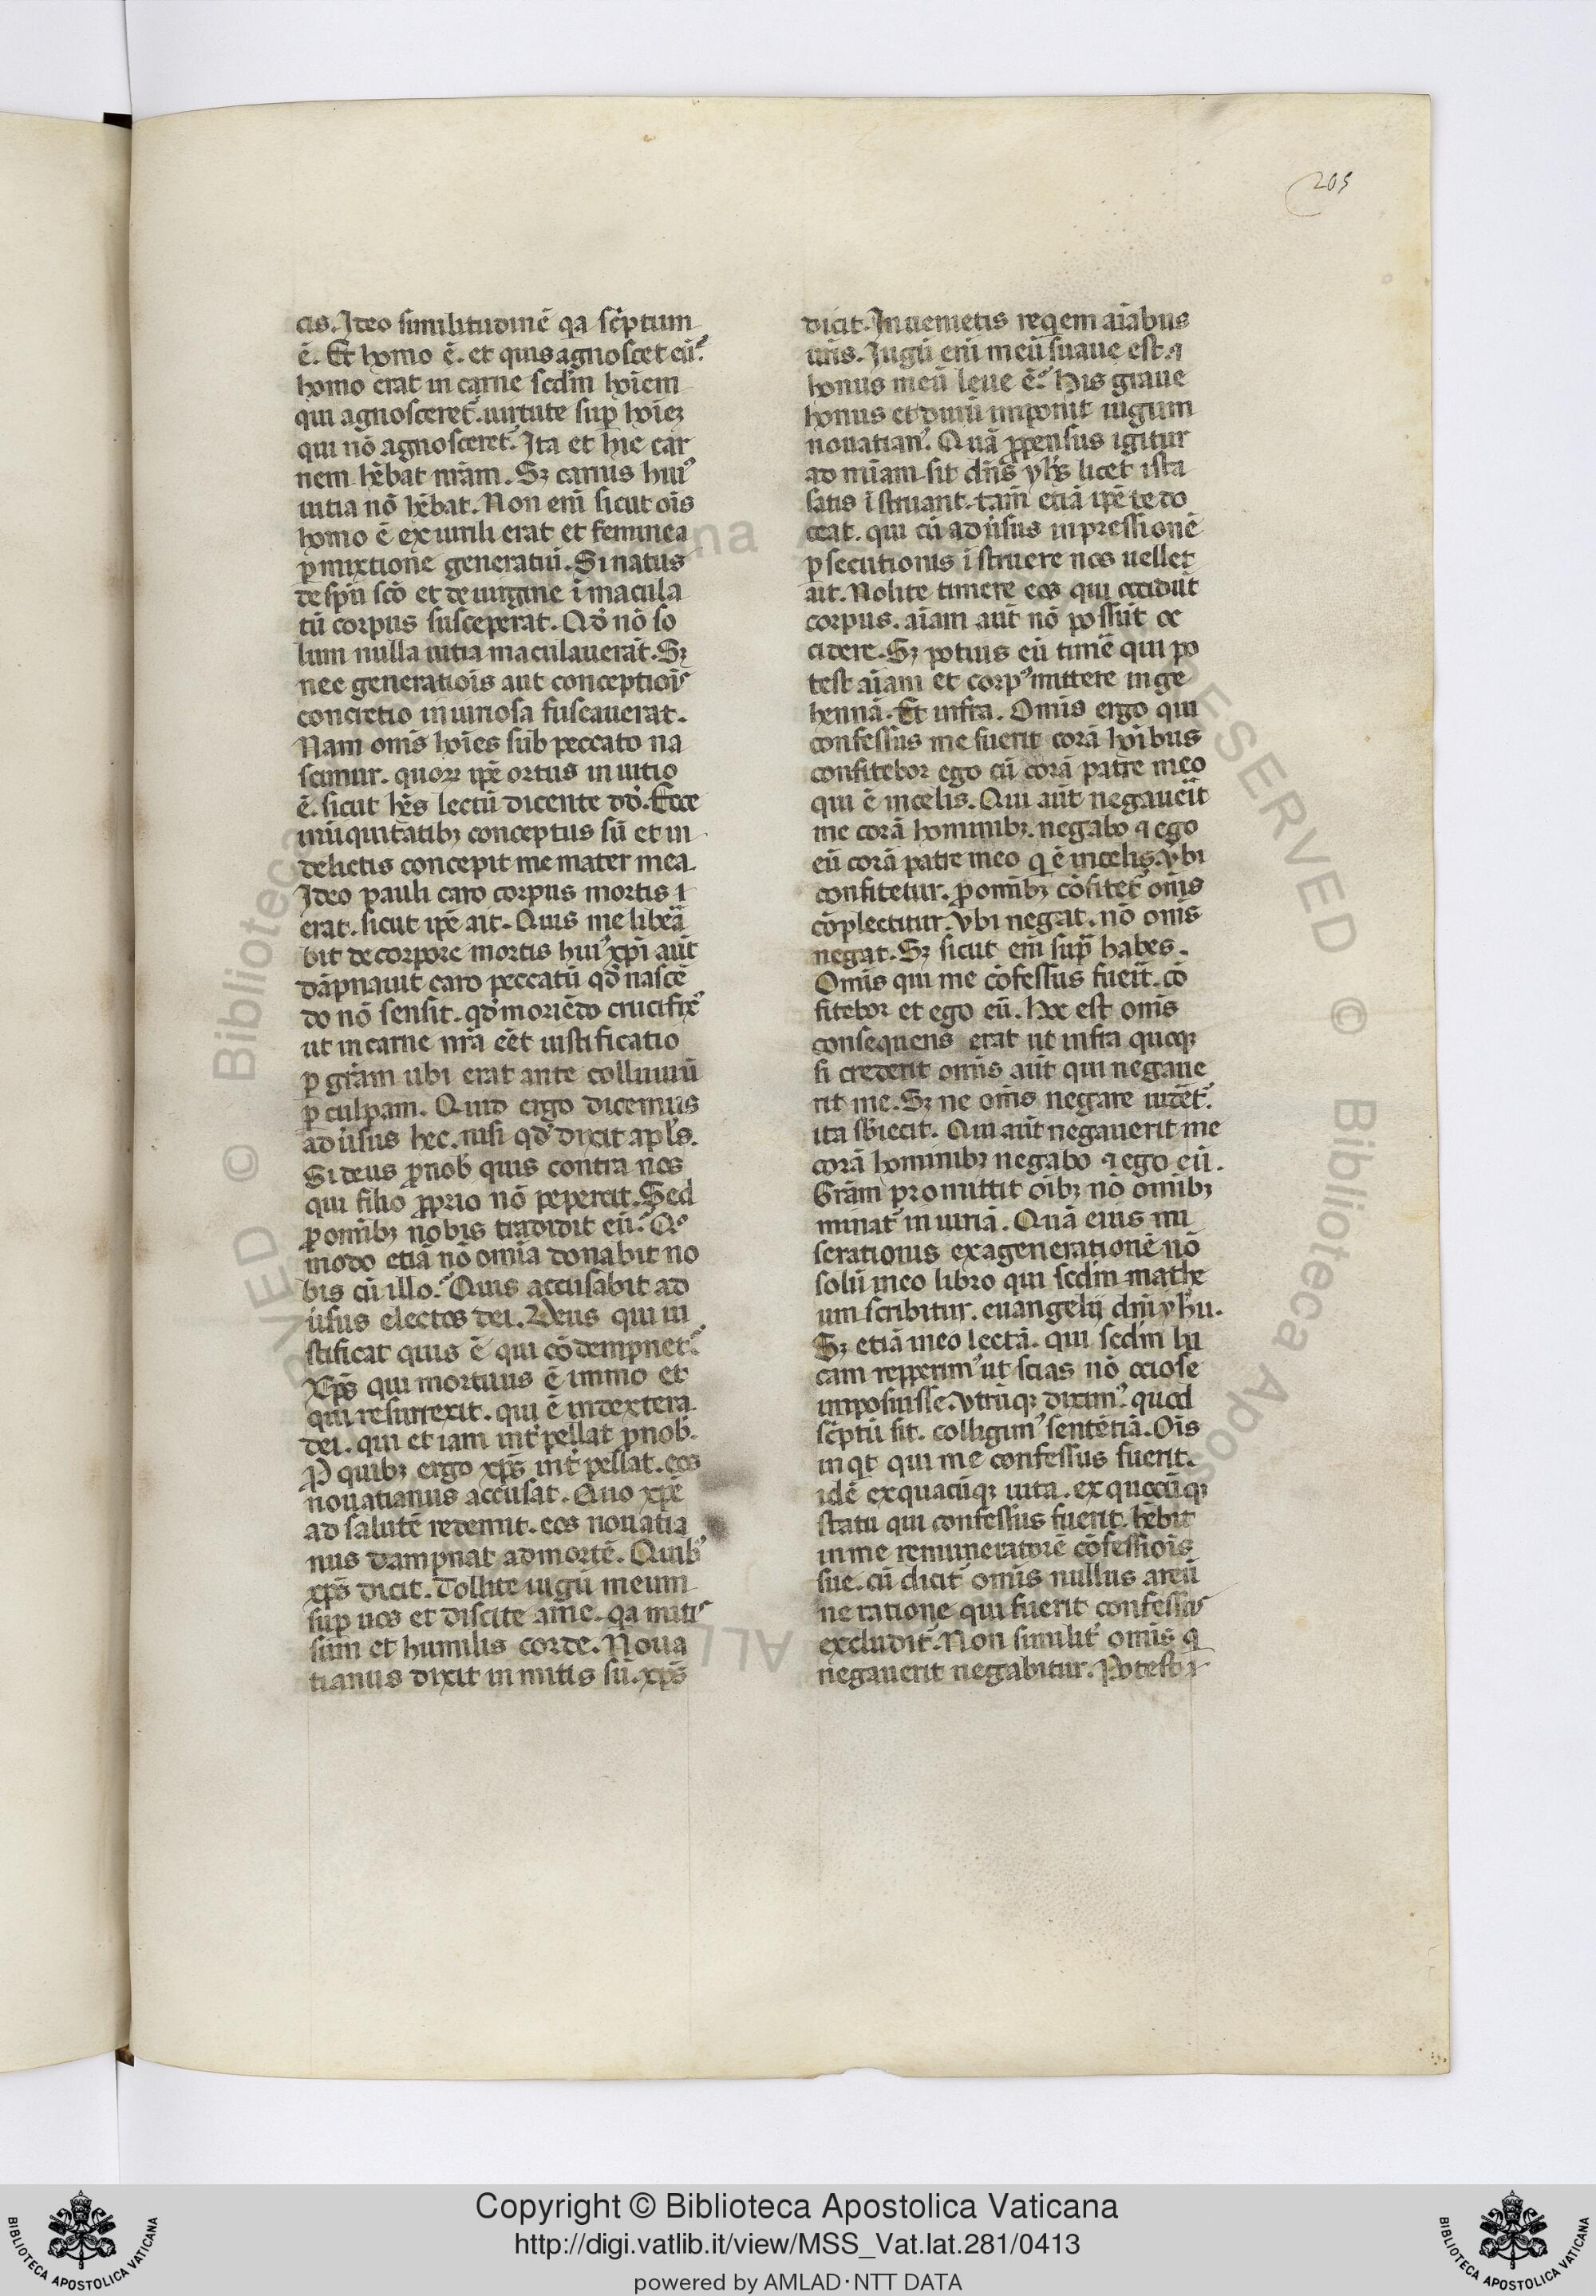 205
cis. Ideo similitudinē qa sc̄ptum
ē. Et homo ē. et quis agnoscet eū?
homo erat in carne scd̄m hoīem
qui agnosceret᷑. uirtute sup̄ hoīeꝫ
qui nō agnosceret᷑. Ita et hic car
nem hēbat nr̄am. Sꝫ carnis huiꝰ
uitia nō hēbat. Non enī sicut oīs
homo ē ex uirili erat et feminea
ꝑmixtione generatiuī. Si natus
de sp̄u sc̄o et de uirgine īmacula
tū corpus susceperat. Qd̄ nō so
lum nulla uitia maculauerāt. Sꝫ
nec generatiōis aut conceptiōis
concretio iniuriosa fuscauerat.
Nam om̄is hoīes sub peccato na
scimur. quoꝝ ip̄e ortus in uitio
ē. sicut hēs lectū dicente dd̄. Ecce
in iniquitatibꝫ conceptus sū et in
delictis concepit me mater mea
Ideo pauli caro corpus mortis i
erat. sicut ip̄e ait. Quis me libeā
bit de corpore mortis huiꝰ xp̄i aūt
dāpnauit caro peccatū qd̄ nascē
do nō sensit. qd̄ moriēdo crucifixꝰ
ut in carne nr̄a eēt iustificatio
ꝑ gr̄am ubi erat ante colluuiū
ꝑ culpam. Quid ergo dicemus
ad ūsus hec. nisi qd̄ dixit apl̄s.
Si deus ꝓ nob̄ quis contra nos
qui filio ꝓprio nō pepercit. Sed
ꝓ om̄ibꝫ nobis tradidit eū. Qͦ
modo etiā nō om̄ia donabit no
bis cū illo? Quis accusabit ad
ūsus electos dei. Deus qui iu
stificat quis ē qui cōdempnet?
Xp̄s qui mortuus ē immo et
qui resurrexit. qui ē in dextera
dei. qui et iam int̄pellat ꝓ nob̄.
P quibꝫ ergo xp̄s int̄pellat. eos
nouatianus accusat. Quo xp̄c
ad salutē redemit. eos nouatia
nus dampnat ad mortē. Quibꝰ
xp̄s dicit. Tollite iugū meum
sup̄ uos et discite a me. qa mitis
sum et humilis corde. Noua
tianus dixit inmitis sū. xp̄s
dicit. Inuenietis reqem aīabus
ur̄is. Jugū enī meū suaue est. ⁊
honus meū leue ē. His graue
honus et durū inponit iugum
nouatianꝰ. Quā ꝓpensus igitur
ad mīam sit dn̄s yh̄s licet ista
satis īstruant. tam̄ etiā ip̄e te do
ceat. qui cū ad ūsus inpressionē
ꝑsecutionis īstruere nos uellet
ait. Nolite timere eos qui occidūt
corpus. aīam aūt nō possūt oc
cidere. Sꝫ potius eū timē qui po
test aīam et corpꝰ mittere in ge
hennā. Et infra. Om̄is ergo qui
confessus me fuerit corā hoībus
confitebor ego eū corā patre meo
qui ē in celis. Qui aūt negauerit
me corā hominibꝫ. negabo ⁊ ego
eū corā patre meo q̄ ē in celis. Vbi
confitetur. ꝓ om̄ibꝫ cōfitet᷑ om̄is
cōplectitur. Vbi negat. nō om̄is
negat. Sꝫ sicut enī sup̄ habes.
Om̄is qui me cōfessus fuerit. cō
fitebor et ego eū. Hoc est om̄is
consequens erat ut infra quoqꝫ
si crederit om̄is aūt qui negaue
rit me. Sꝫ ne om̄is negare uidēt᷑.
ita sb̄iecit. Qui aūt negauerit me
corā hominibꝫ negabo ⁊ ego eū.
Gr̄am promittit oībꝫ nō om̄ibꝫ
minat᷑ iniuriā. Quā eius mi
serationis exagenerationē nō
solū in eo libro qui scd̄m mathe
um scribitur. euangelij dn̄i yh̄u.
Sꝫ etiā in eo lectā. qui scd̄m lu
cam repperimꝰ ut scias nō ociose
imposuisse. Vtrūqꝫ diximꝰ. quod
sc̄ptū sit. colligimꝰ sentētiā. Oīs
inqt qui me confessus fuerit.
idē ex quacūqꝫ uita. ex quocūqꝫ
statu qui confessus fuerit. hēbit
in me remuneratorē cōfessiōis
sue. cū dicit᷑ om̄is nullus areū
ne ratione qui fuerit confessus
excludit᷑. Non similit᷑ om̄is q
negauerit negabitur. Potest i
Copyright © Biblioteca Apostolica Vaticana
http://digi.vatlib.it/view/MSS_Vat.lat.281/0413
powered by AMLAD·NTT DATA